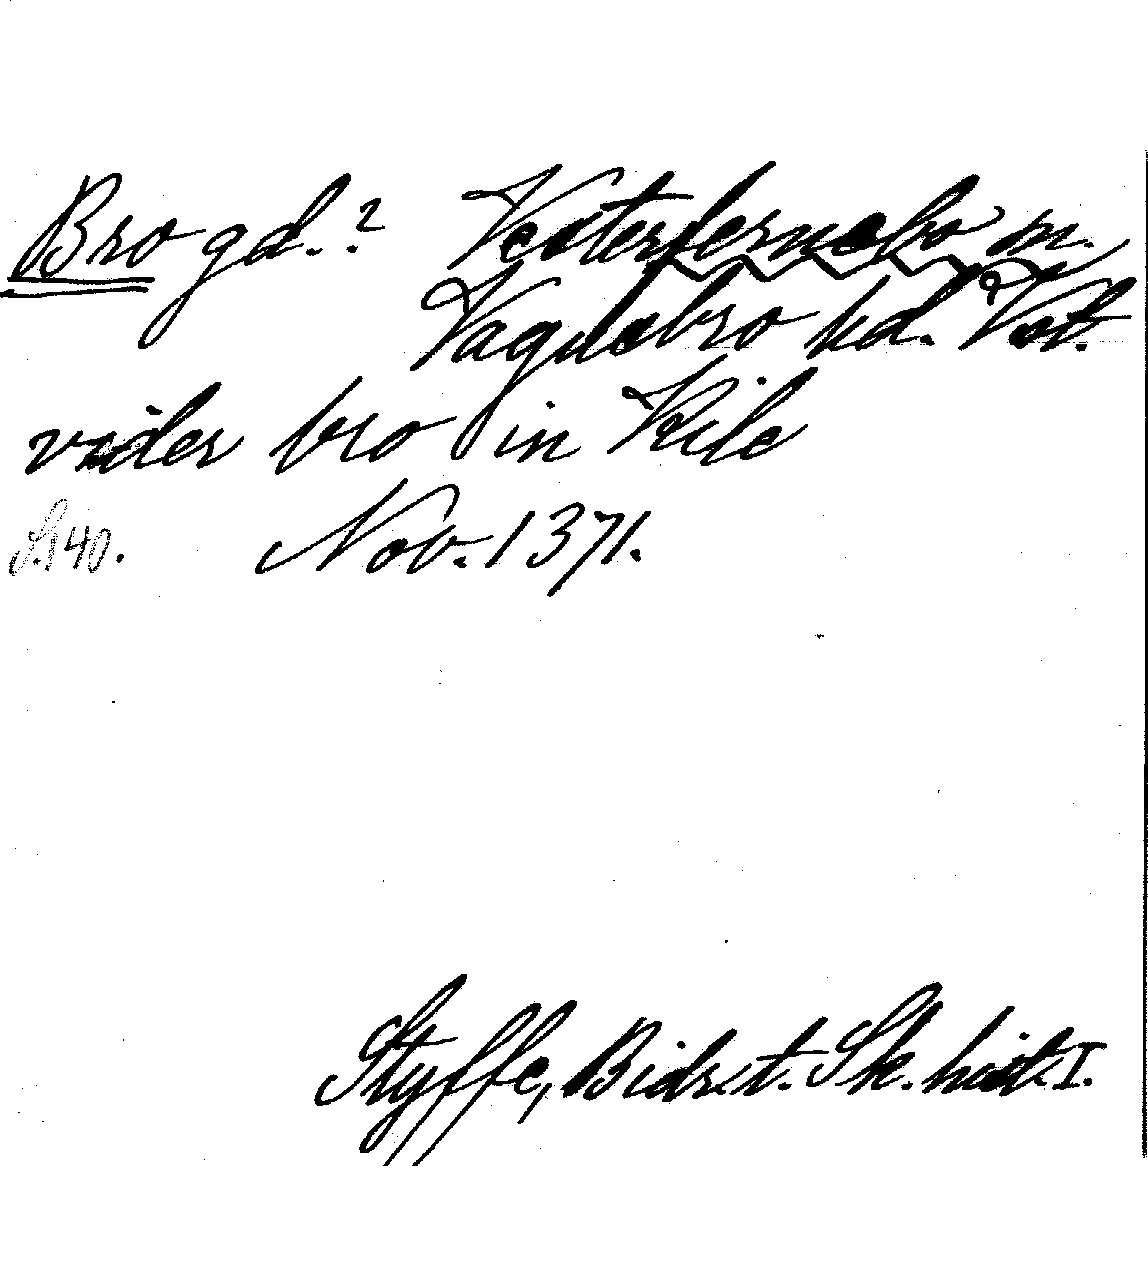 Bro gd.? Vesterfernebo sn.
Vagnsbro hd. Vst.
vider bro in Kile
S. 140. Nov. 1371.
Styffe, Bidr. t. Sk. hist. I.